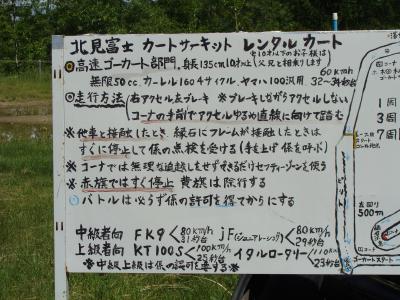 北見富士 カートサーキット レンタル カート
◎高速ゴーカート部門、身長135cm10才以上
※10才以下のお子様は父兄と相乗りします
無限50cc. カーレル160キサイクル、ヤマハ100汎用 60km/h 32〜34秒台
◎走行方法 (右アクセル左ブレーキ ※ブレーキしながらアクセルしない
コーナの手前でアクセルゆるめ直線に向けて踏む
※他車と接触したとき 縁石にフレームが接触したときは
すぐに停止して係の点検を受ける(手を上げ係を呼ぶ)
※コーナでは無理な追越しをせずできるだけセフティーゾーンを使う
※赤旗ではすぐ停止 黄旗は徐行する
① バトルは必らず係の許可を得てからにする
中級者向 FK9 80km/h 31秒台 jF(ジュニアレーシング) 80km/h 29秒台
上級者向 KT100S 90km/h 25秒台 イタルロータリー 110km/h 23秒台
※中級上級は係の認可を要する※
1周
3周
右回り
500m
コーナ
ゴーカートスタート